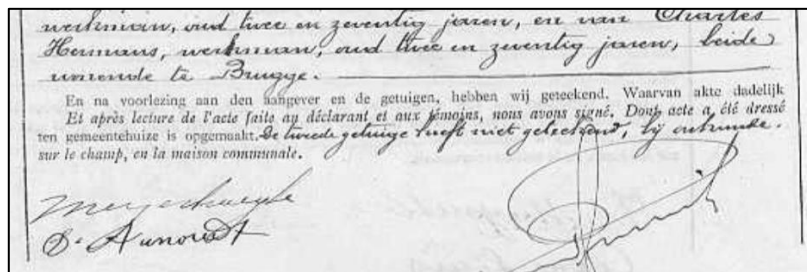 werkman, oud twee en zeventig jaren, en van Charles
Hermans, werkman, oud twee en zeventig jaren, beide
wonende te Brugge.
En na voorlezing aan den aangever en de getuigen, hebben wij geteekend. Waarvan akte dadelijk
Et après lecture de l'acte faite au déclarant et aux témoins, nous avons signé. Dont acte a été dressé
ten gemeentehuize is opgemaakt. De tweede getuige heeft niet geteekend, bij onkunde.
sur le champ, en la maison communale.